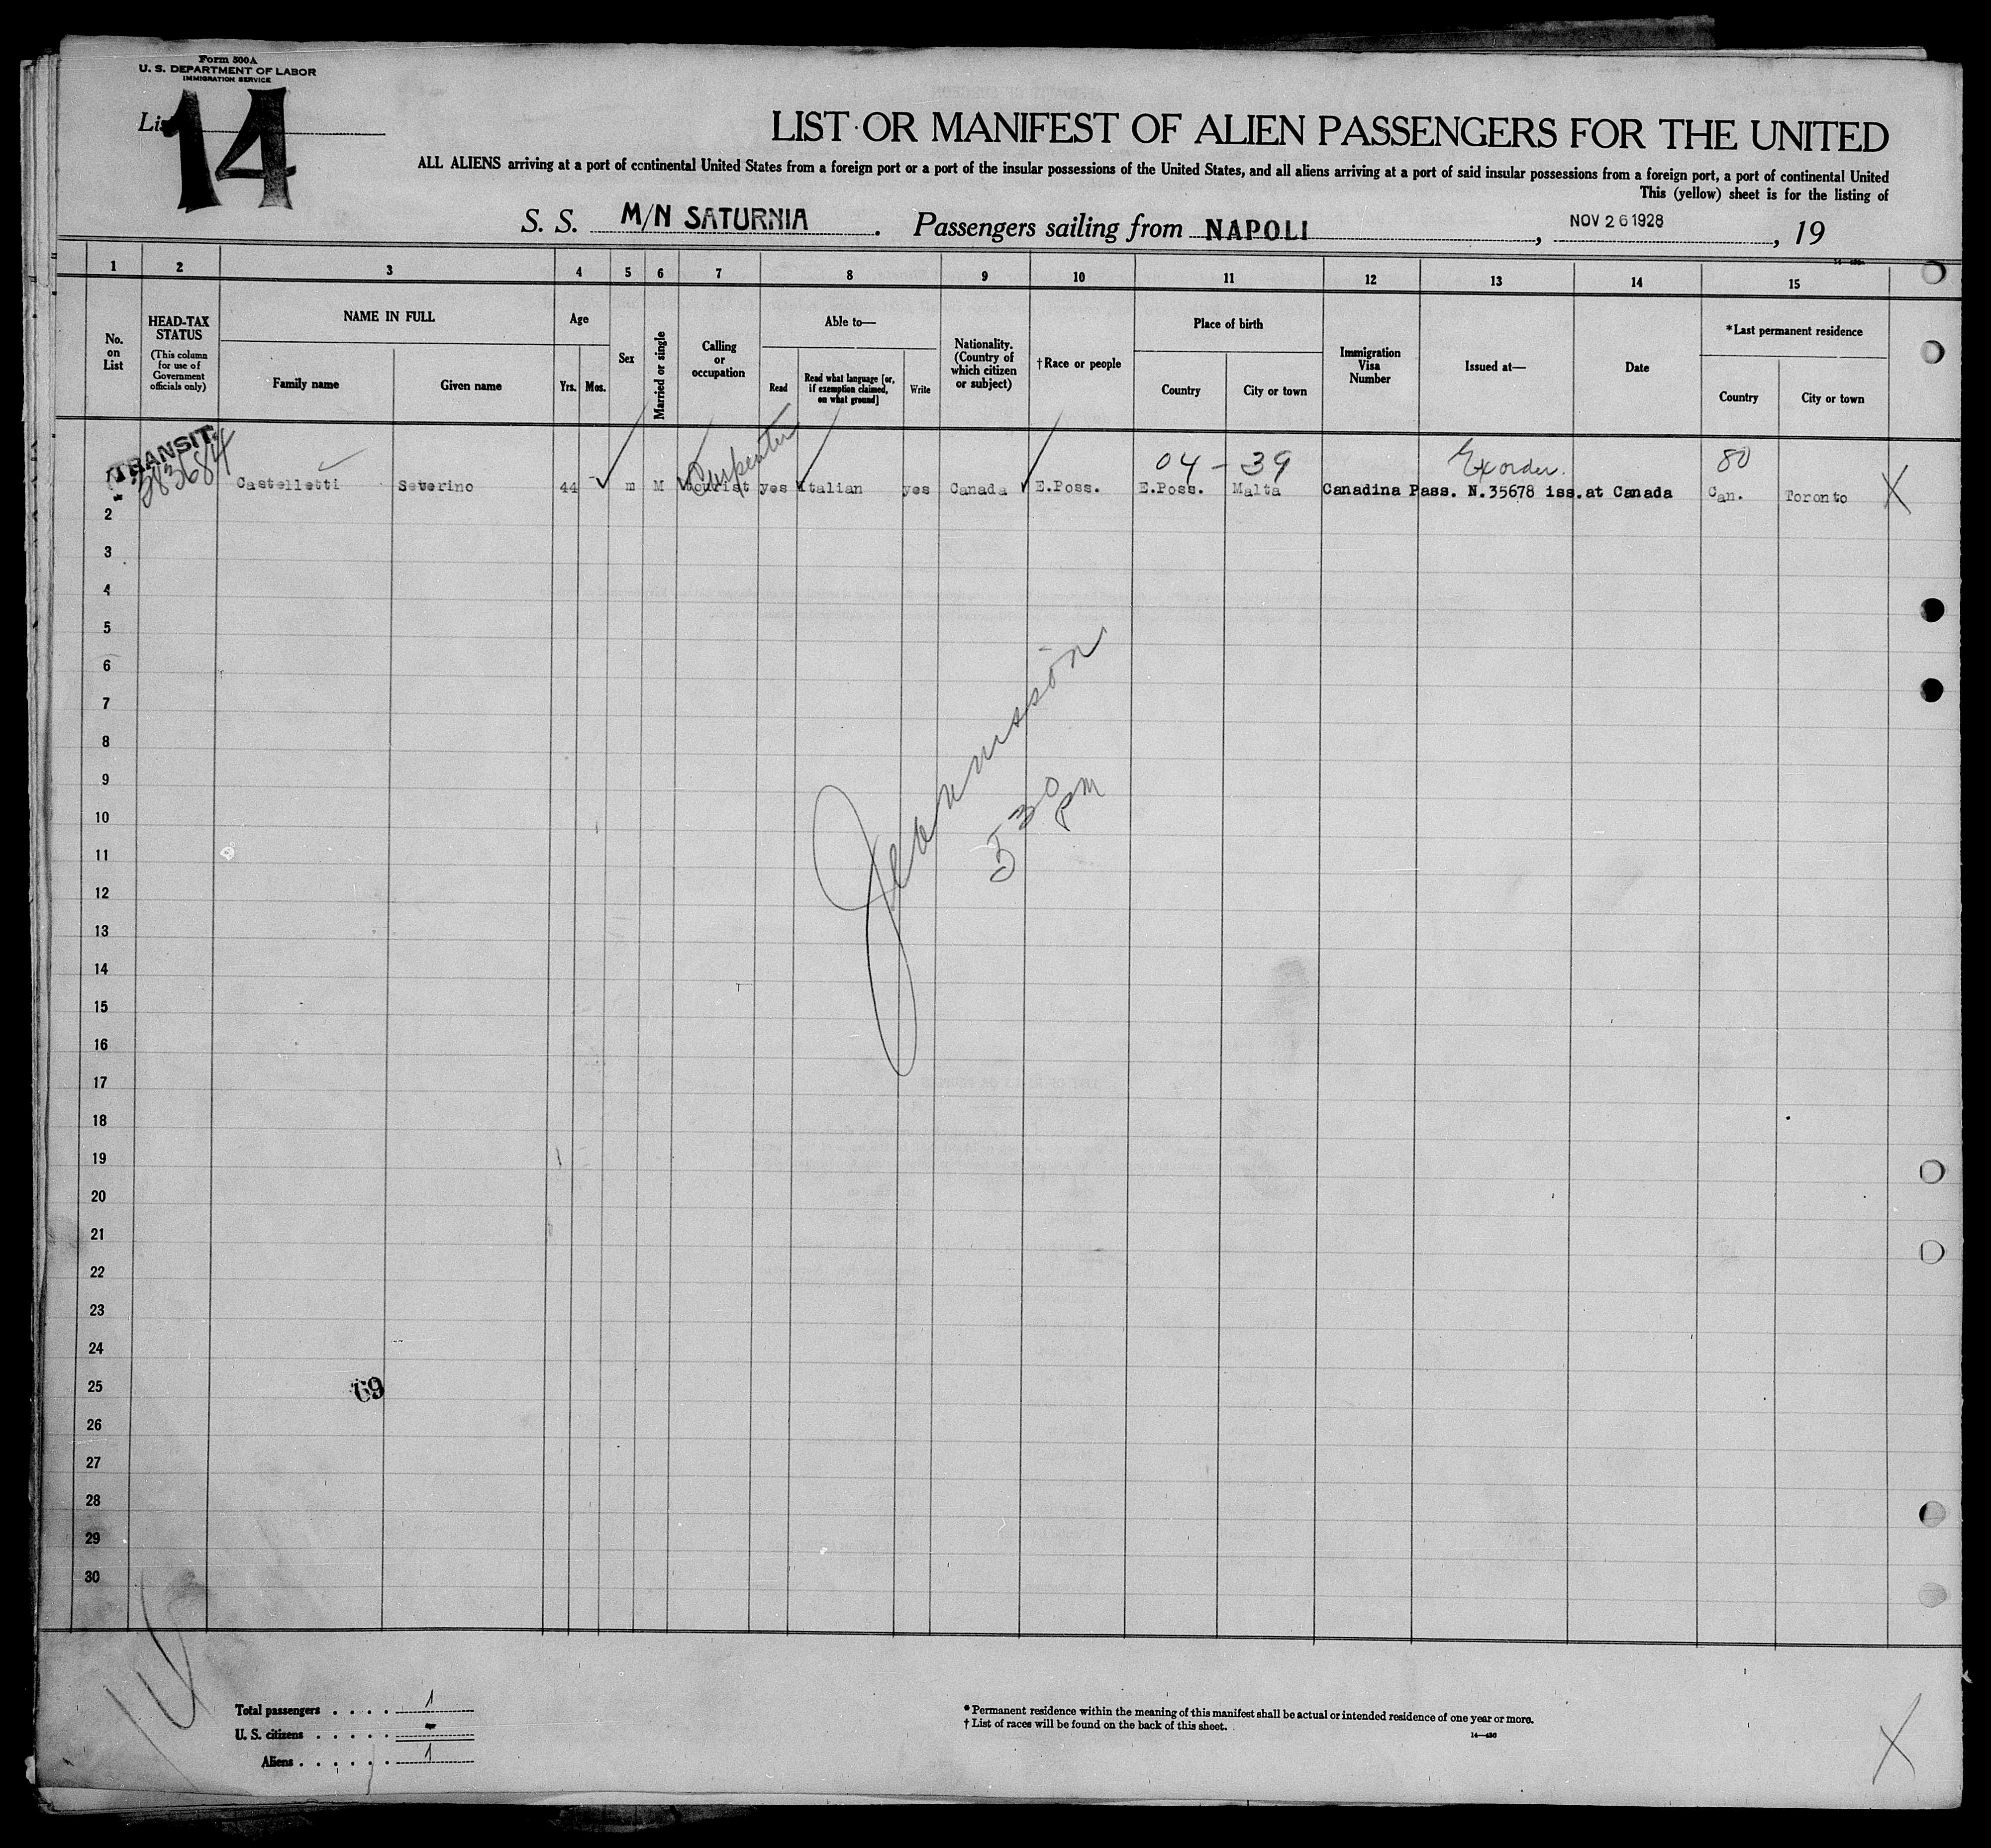 Form 500A
U. S. DEPARTMENT OF LABOR
IMMIGRATION SERVICE
14
LIST OR MANIFEST OF ALIEN PASSENGERS FOR THE UNITED
ALL ALIENS arriving at a port of continental United States from a foreign port or a port of the insular possessions of the United States, and all aliens arriving at a port of said insular possessions from a foreign port, a port of continental United
This (yellow) sheet is for the listing of
S. S. M/N SATURNIA . Passengers sailing from NAPOLI , NOV 26 1928 , 19
1 2 3 4 5 6 7 8 9 10 11 12 13 14 15
No. on List
HEAD-TAX STATUS
(This column for use of Government officials only)
NAME IN FULL
Family name
Given name
Age
Yrs.
Mos.
Sex
Married or single
Calling or occupation
Able to—
Read
Read what language [or, if exemption claimed, on what ground]
Write
Nationality. (Country of which citizen or subject)
†Race or people
Place of birth
Country
City or town
Immigration Visa Number
Issued at—
Date
*Last permanent residence
Country
City or town
TRANSIT
383684
Carpenter
04 - 39
Ex order.
80
Castelletti Severino 44 m M tourist yes Italian yes Canada E.Poss. E.Poss. Malta Canadina Pass. N.35678 iss.at Canada Can. Toronto X
2
3
4
5
6
7
8
9
10
11
12
13
14
15
16
17
18
19
20
21
22
23
24
25
26
27
28
29
30
5 30 pm
69
Total passengers . . . . . 1
U. S. citizens . . . . . -
Aliens . . . . . . 1
* Permanent residence within the meaning of this manifest shall be actual or intended residence of one year or more.
† List of races will be found on the back of this sheet.
14—430
X